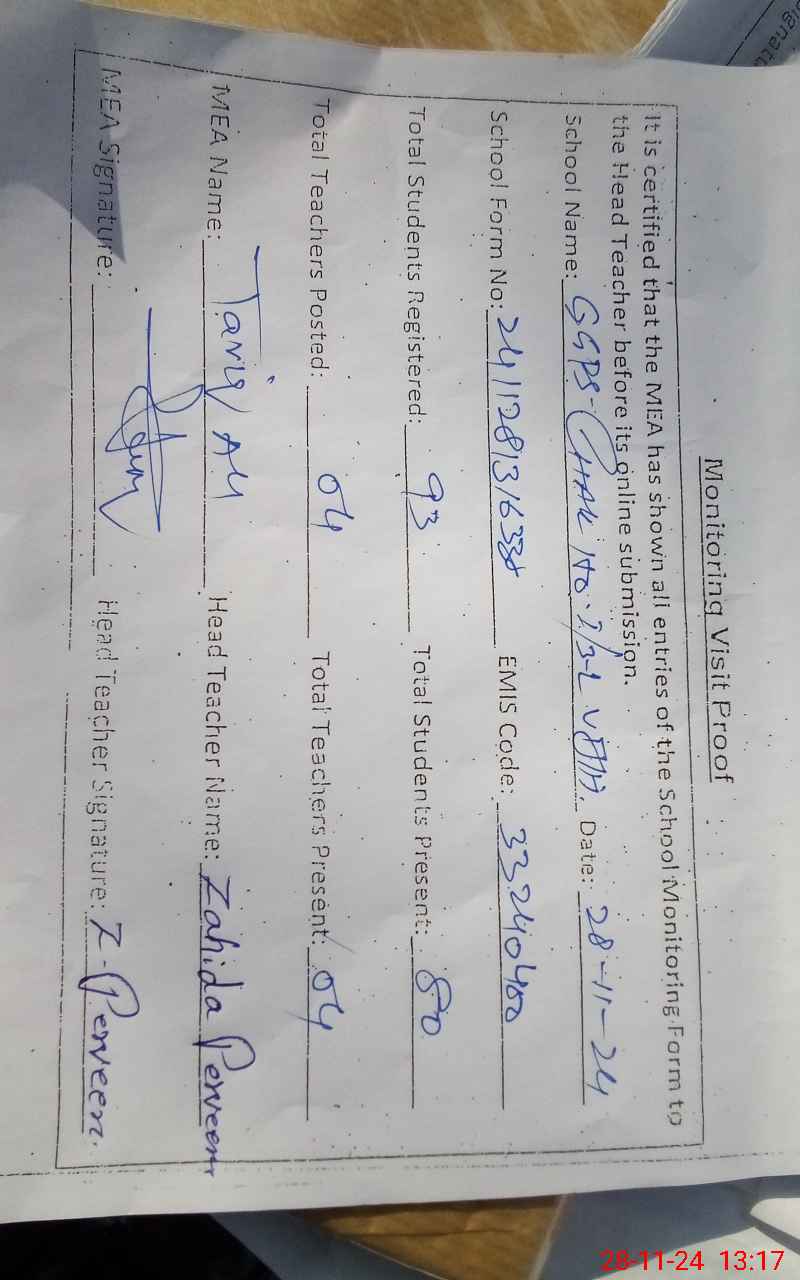 Signatu
Monitoring Visit Proof
It is certified that the MEA has shown all entries of the School Monitoring Form to
the Head Teacher before its online submission.
School Name: GGPS-CHAK No. Date: 28-11-24
School Form No: EMIS Code: 33240400
Total Students Registered: 93 Total Students Present: 80
Total Teachers Posted: 04 Total Teachers Present: 04
MEA Name: Tariq Head Teacher Name: Zahida Perveen
MEA Signature: Head Teacher Signature: Z-Perveen.
28-11-24 13:17